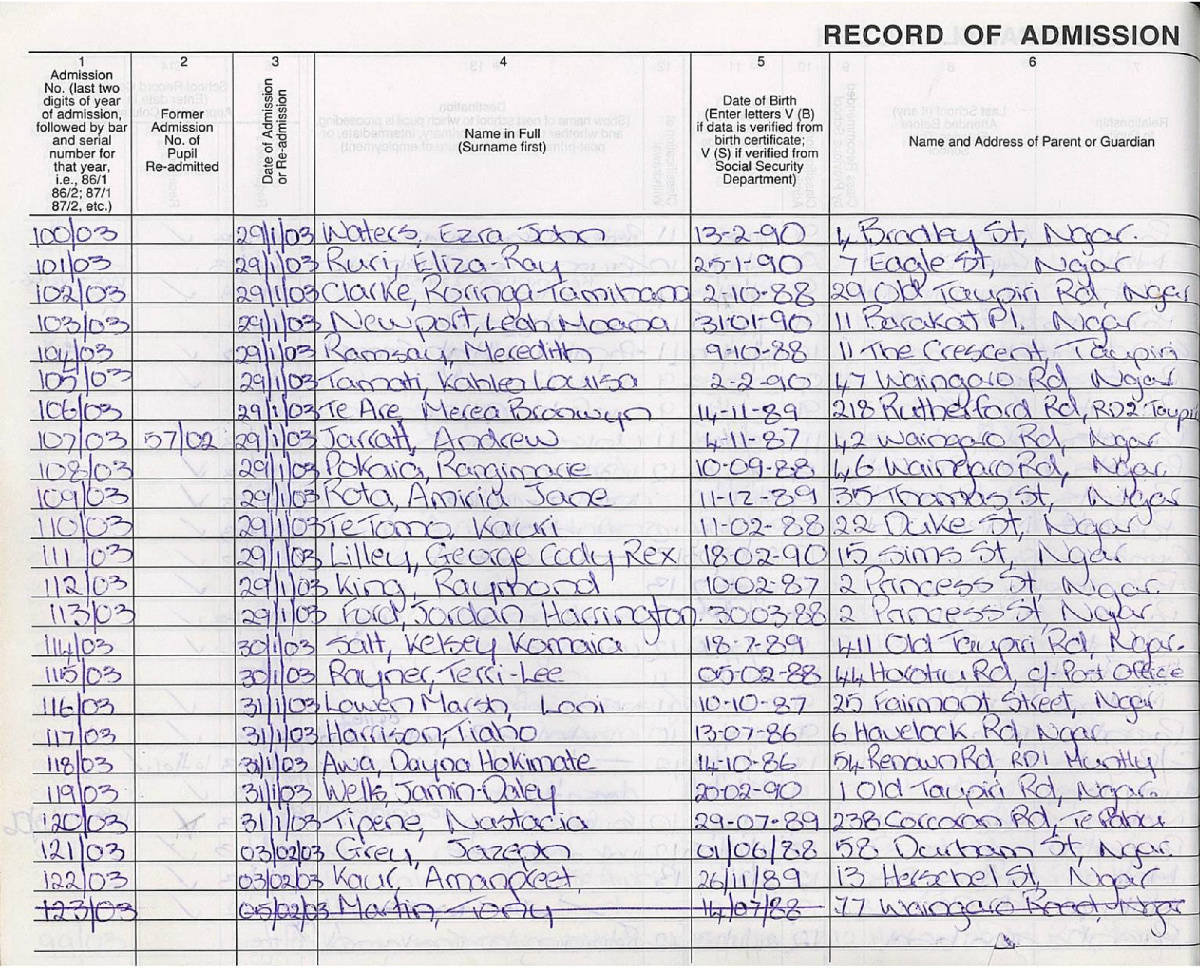 RECORD OF ADMISSION
1 2 3 4 5 6
Admission No. (last two digits of year of admission, followed by bar and serial number for that year, i.e., 86/1 86/2; 87/1 87/2, etc.)
Former Admission No. of Pupil Re-admitted
Date of Admission or Re-admission
Name in Full (Surname first)
Date of Birth (Enter letters V (B) if data is verified from birth certificate; V (S) if verified from Social Security Department)
Name and Address of Parent or Guardian
100/03 29/1/03 Waters, Ezra John 13-2-90 4 Bradley St, Ngar.
101/03 29/1/03 Ruri, Eliza-Ray 25-1-90 7 Eagle St, Ngar
102/03 29/1/03 Clarke, Roringa Tamihana 2-10-88 29 Old Taupiri Rd, Ngar
103/03 29/1/03 Newport, Leah Moana 31-01-90 11 Barakat Pl. Ngar
104/03 29/1/03 Ramsay, Meredith 9-10-88 11 The Crescent, Taupiri
105/03 29/1/03 Tamati, Kahlea Louisa 2-2-90 47 Waingaro Rd, Ngar
106/03 29/1/03 Te Are, Merea Bronwyn 14-11-89 218 Rutherford Rd, RD2 Taupiri
107/03 57/02 29/1/03 Jarratt, Andrew 4-11-87 42 Waingaro Rd, Ngar
108/03 29/1/03 Pokaia, Rangimarie 10-09-88 46 Waingaro Rd, Ngar.
109/03 29/1/03 Rota, Amiria Jane 11-12-89 35 Thomas St, Ngar
110/03 29/1/03 Te Tomo, Kauri 11-02-88 22 Duke St, Ngar
111/03 29/1/03 Lilley, George Cody Rex 18-02-90 15 Sims St, Ngar
112/03 29/1/03 King, Raymond 10-02-87 2 Princess St, Ngar.
113/03 29/1/03 Ford, Jordan Harrington. 30-03-88 2 Princess St, Ngar.
114/03 30/1/03 Salt, Kelsey Komaia 18-7-89 411 Old Taupiri Rd, Ngar.
115/03 30/1/03 Rayner, Terri-Lee 05-02-88 44 Horotiu Rd, c/- Post Office
116/03 31/1/03 Lowen Marsh, Loni 10-10-87 25 Fairmont Street, Ngar
117/03 31/1/03 Harrison, Tiaho 13-07-86 6 Havelock Rd, Ngar.
118/03 31/1/03 Awa, Dayna Hokimate 14-10-86 54 Renown Rd, RD1 Huntly
119/03 31/1/03 Wells, Jamin-Daley 20-02-90 1 Old Taupiri Rd, Ngar.
120/03 31/1/03 Tipene, Nastacia 29-07-89 238 Corcoran Rd, Te Pahu
121/03 03/02/03 Grey, Jazeph 01/06/88 58 Durham St, Ngar.
122/03 03/02/03 Kaur, Amanpreet 26/11/89 13 Herschel St, Ngar
123/03 05/02/03 Martin, Tony 14/07/88 77 Waingaro Road, Ngar